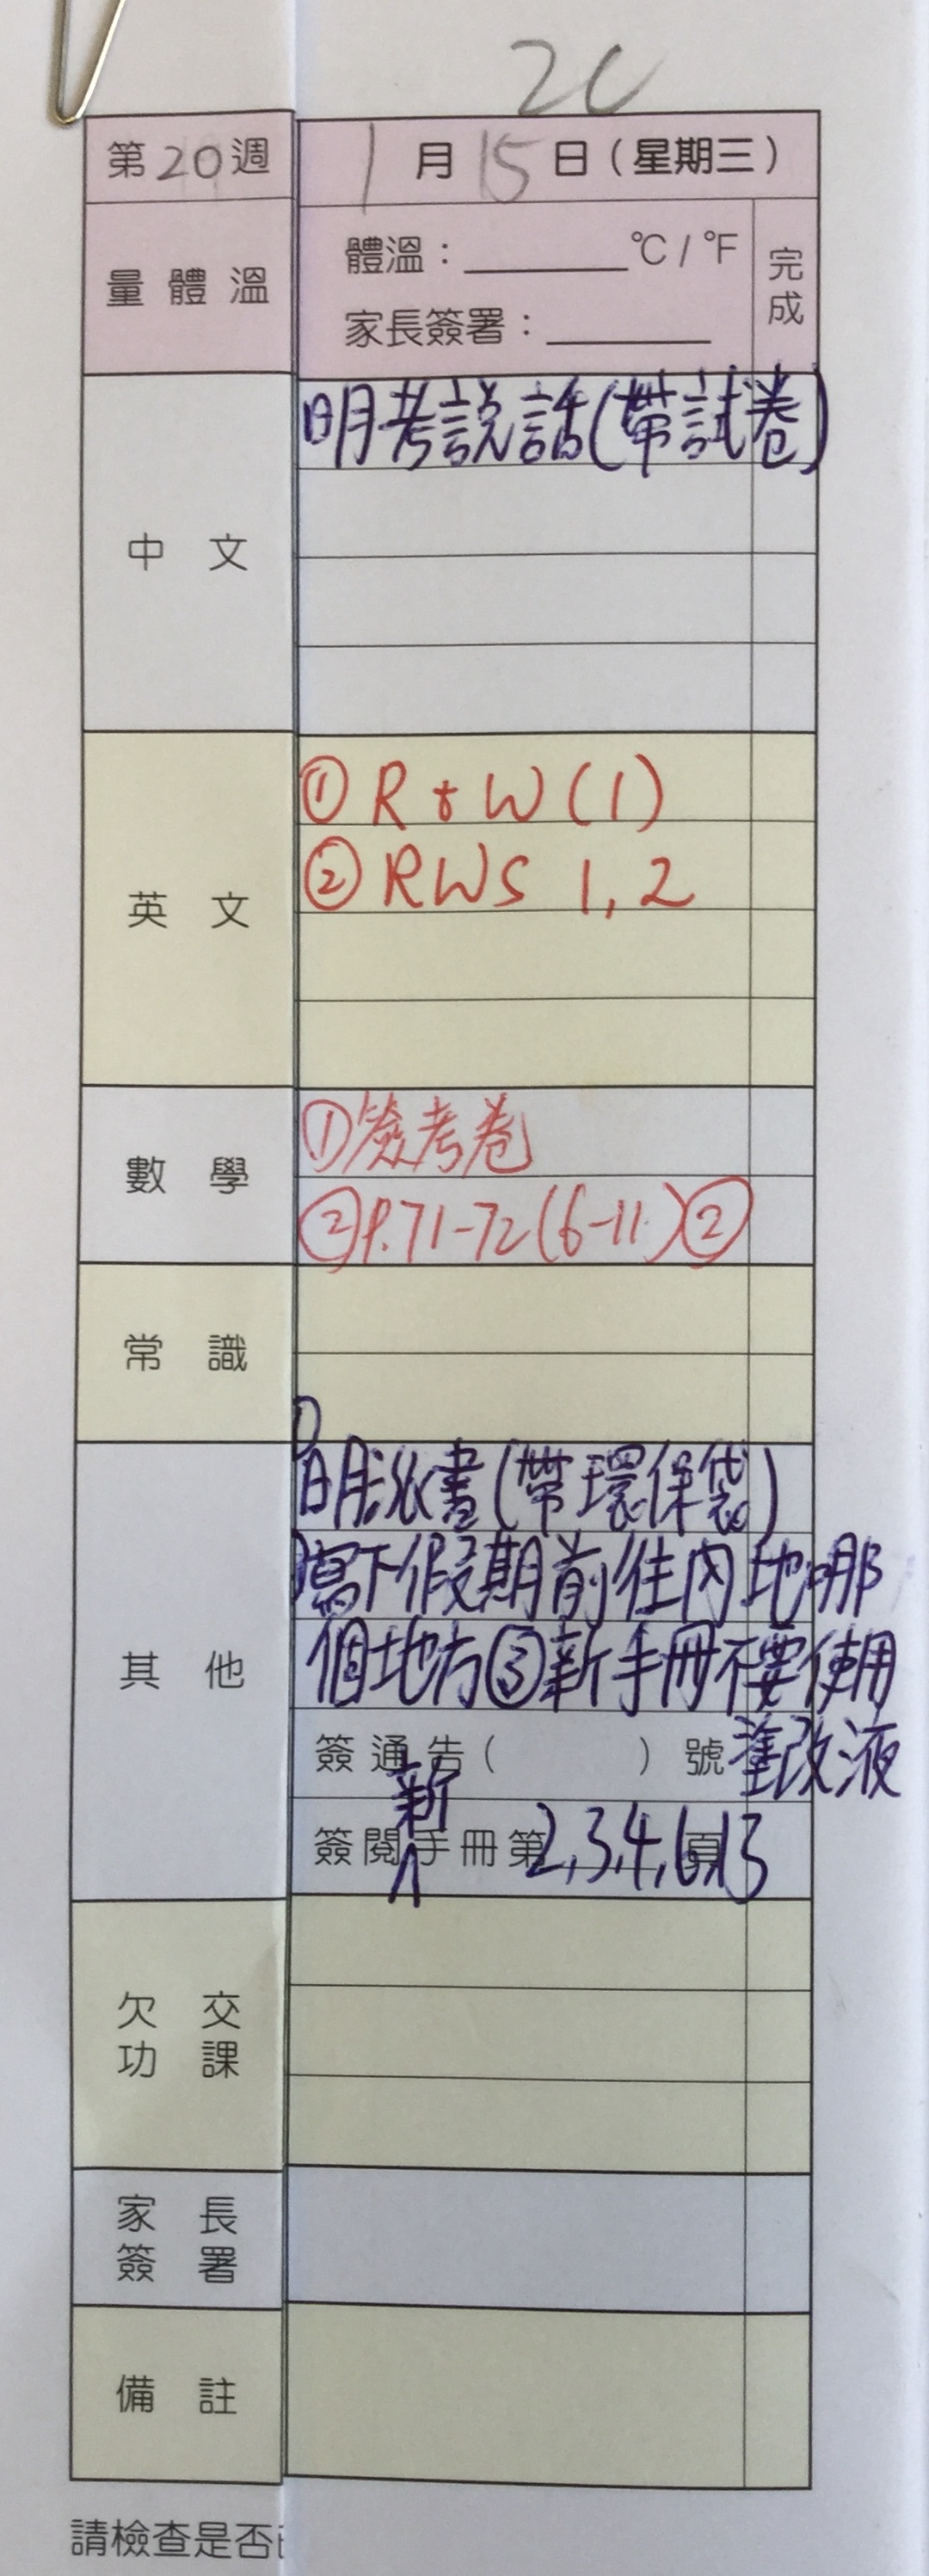 2C
第20週 1月15日(星期三)
量體溫 體溫：______℃/℉ 完成
家長簽署：______
中文 明考説話(帶試卷)
英文 ① R + W (1)
② RWS 1, 2
數學 ①簽考卷
②P.71-72(6-11)②
常識
其他 ①明派書(帶環保袋)
寫下假期前往內地哪
個地方③新手冊不要使用
簽通告( )號 塗改液
簽閱新手冊第2,3,4,6,13頁
欠交功課
家長簽署
備註
請檢查是否